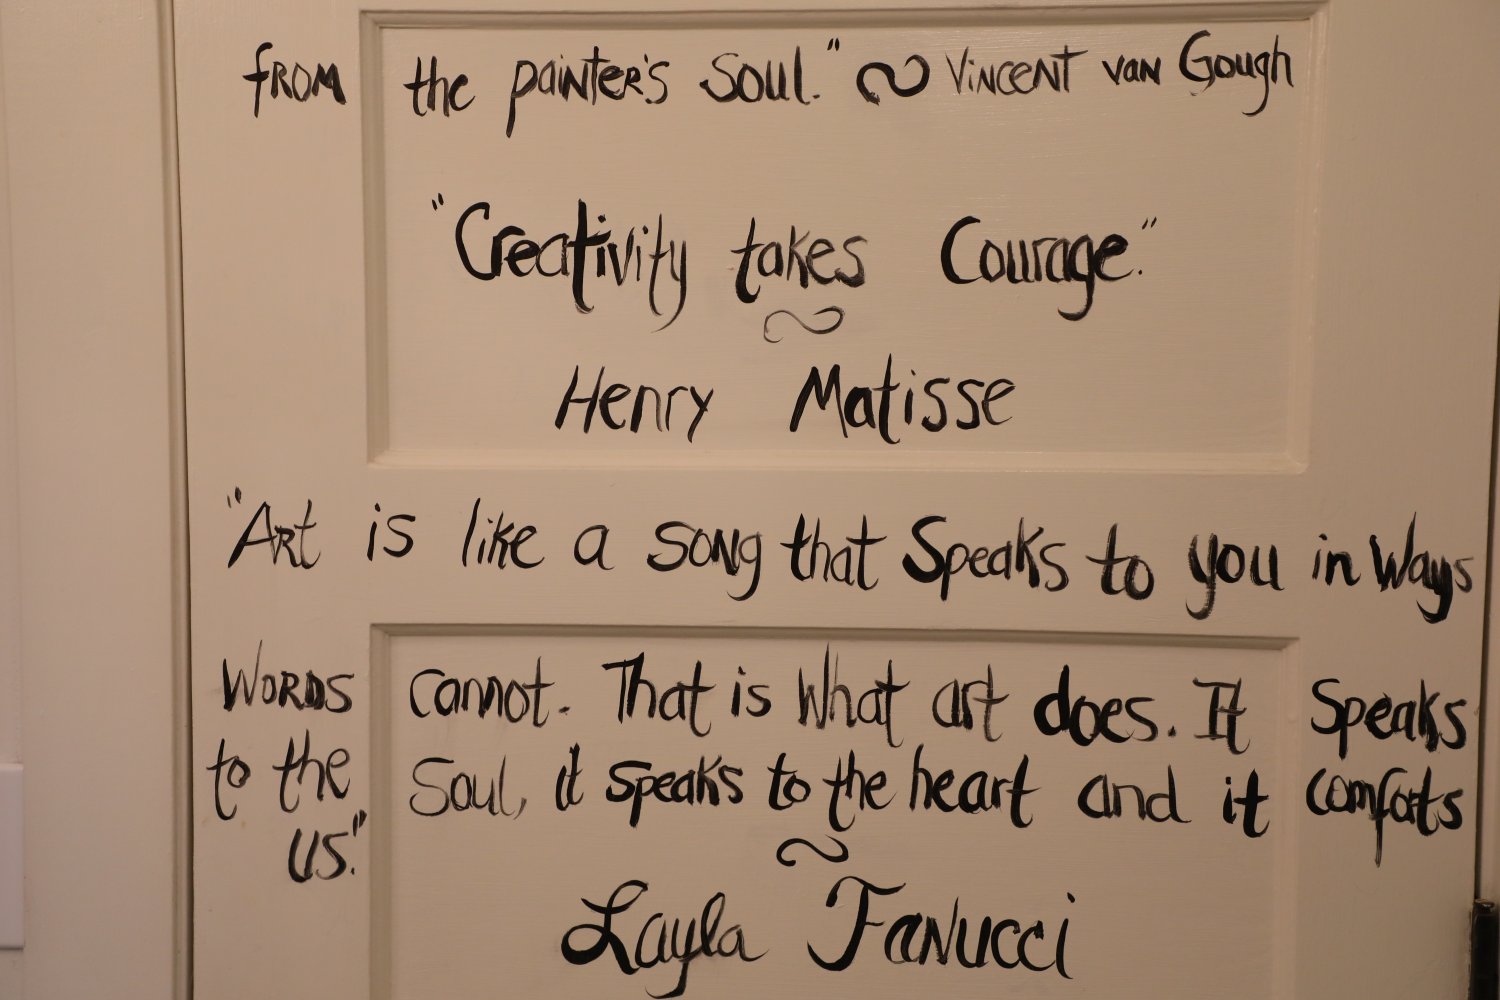 from the painter's Soul." ~ Vincent van Gough
"Creativity takes Courage."
~
Henry Matisse
"Art is like a song that Speaks to you in Ways
Words cannot. That is What art does. It Speaks
to the Soul, it speaks to the heart and it comforts
us."
~
Layla Fanucci